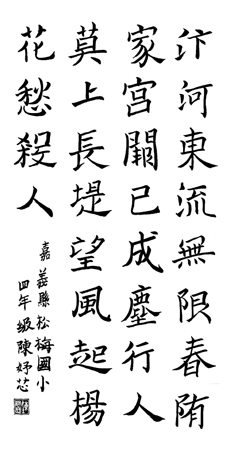 汴河東流無限春陏
家宮闕已成塵行人
莫上長堤望風起楊
花愁殺人
嘉義縣松梅國小
四年級陳妤芯